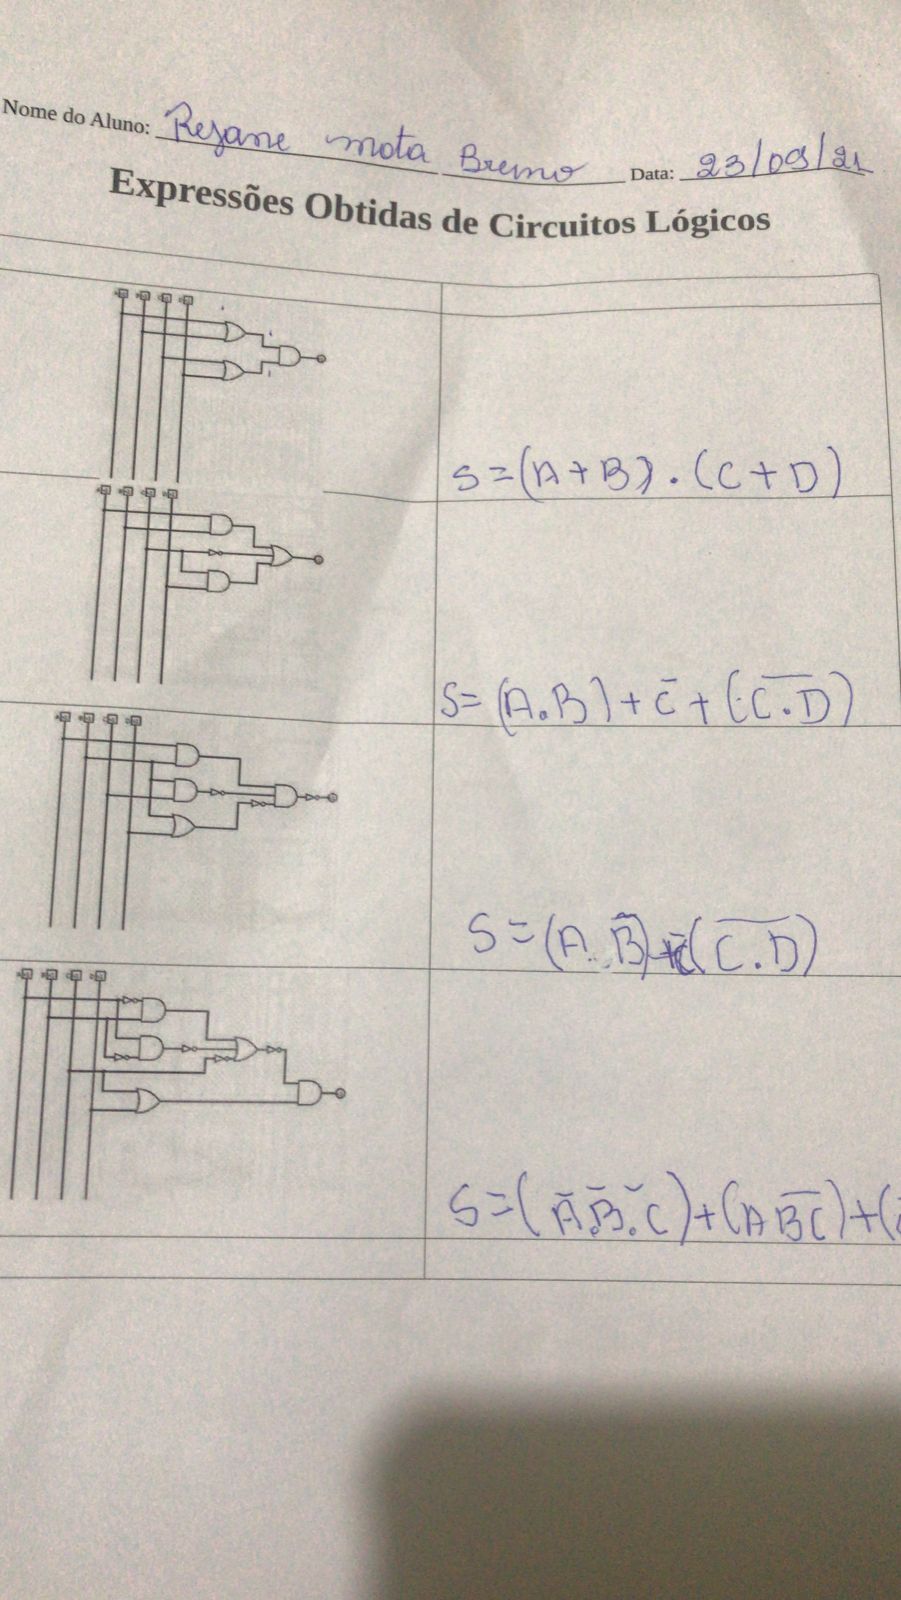 Nome do Aluno: Rezane mota Bremo Data: 23/09/21
Expressões Obtidas de Circuitos Lógicos
S=(A+B).(C+D)
S=(A.B)+C̅+(C̅.̅D̅)
S=(A.B̅)+(C̅.̅D̅)
S=(A̅.B̅.C̅)+(AB̅C̅)+(